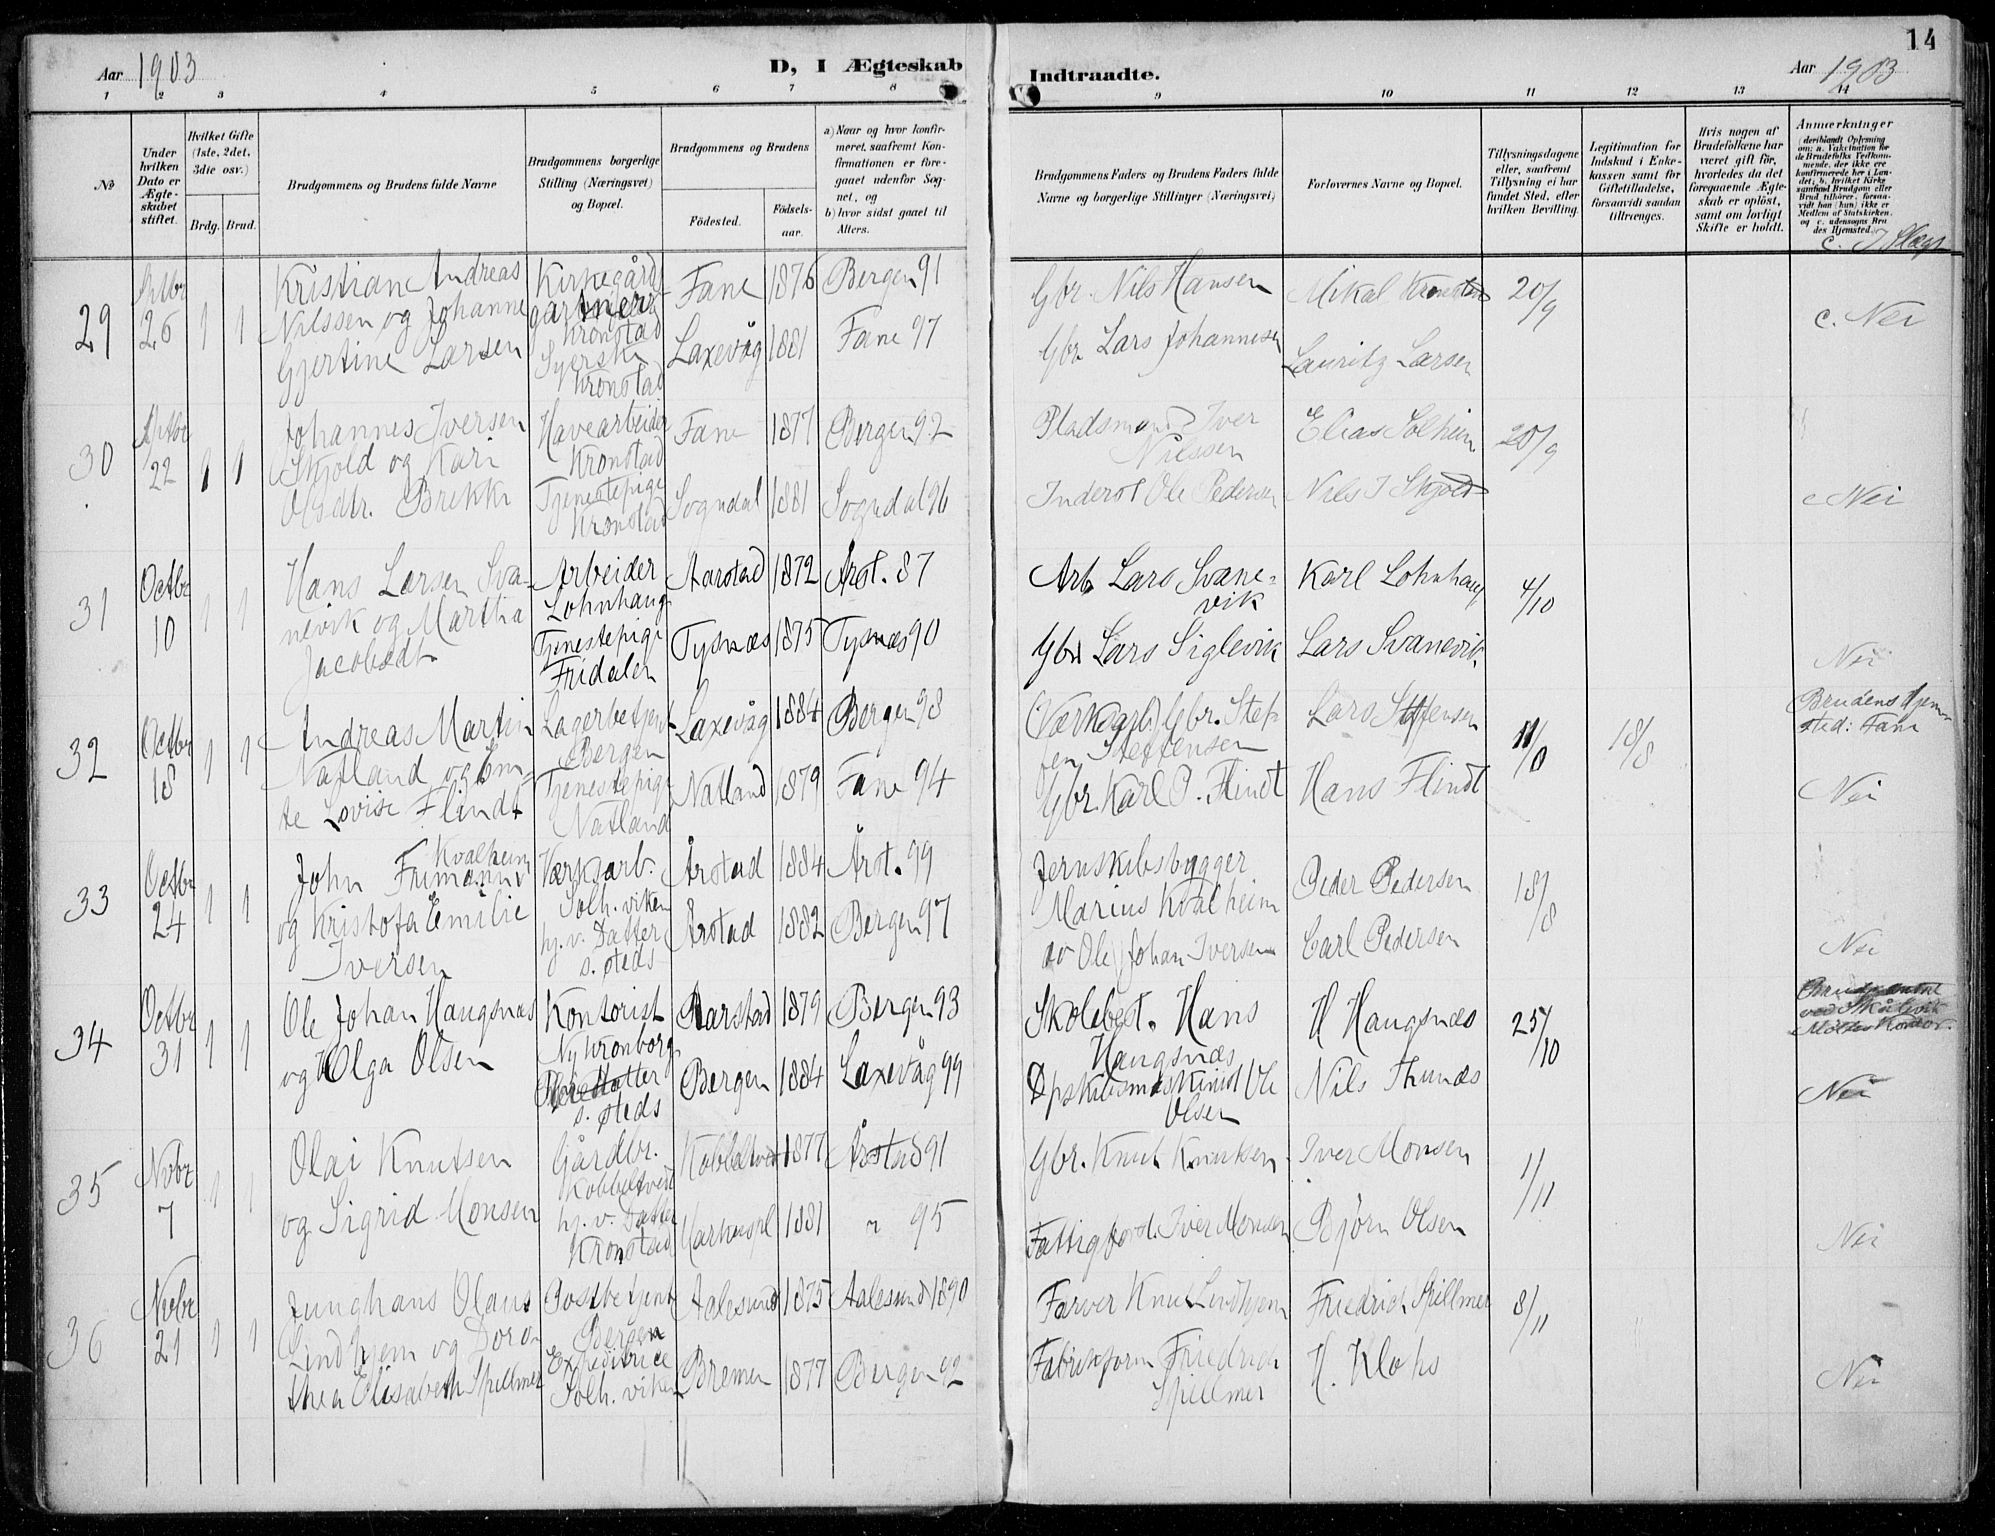 14
Aar 1903 D, I Ægteskab Indtraadte. Aar 1903
1 2 3 4 5 6 7 8 9 10 11 12 13 14
No
Under hvilken Dato er Ægteskabet stiftet.
Hvilket Gifte (1ste, 2det, 3die osv.)
Brdg. Brud.
Brudgommens og Brudens fulde Navne
Brudgommens borgerlige Stilling (Næringsvei) og Bopæl.
Brudgommens og Brudens
Fødested. Fødselsaar.
a) Naar og hvor konfirmeret, saafremt Konfirmationen er foregaaet udenfor Sognet, og
b) hvor sidst gaaet til Alters.
Brudgommens Faders og Brudens Faders fulde Navne og borgerlige Stillinger (Næringsvei)
Forlovernes Navne og Bopæl.
Tillysningsdagene eller, saafremt Tillysning ei har fundet Sted, efter hvilken Bevilling.
Legitimation for Indskud i Enkekassen samt for Giftetilladelse, forsaavidt saadan tiltrænges.
Hvis nogen af Brudefolkene har været gift før, hvorledes da det foregaaende Ægteskab er opløst, samt om lovligt Skifte er holdt.
Anmerkninger (deriblandt Oplysning om: a. Vaksination for de Brudefolks Vedkommende, der ikke ere konfirmerede her i Landet; b. hvilket Kirkesamfund Brudgom eller Brud tilhører, forsaavidt han (hun) ikke er Medlem af Statskirken, og c. udensogns Brudes Hjemsted.)
c. I Slægt
29
26
1 1
Kristian Andreas
Nilssen og Johanne
Gjertine Larsen
Kirkegårds
gartner
Kronstad
Syerske
Kronstad
Fane 1876 Bergen 91
Laxevåg 1881 Fane 97
Gbr. Nils Hansen
Gbr. Lars Johannesen
Mikal Kronstad
Lauritz Larsen
20/9
c. Nei
30
22
1 1
Johannes Iversen
Skjold og Kari
Olsdtr. Brekke
Havearbeider
Kronstad
Tjenestepige
Kronstad
Fane 1877 Bergen 92
Sogndal 1881 Sogndal 96
Pladsmand Iver
Nilssen
Inderst Ole Pedersen
Elias Solheim
Nils I Skjold
20/9
c Nei
31
Octbr
10
1 1
Hans Larsen Sva-
nevik og Martha
Jacobsdt
Arbeider
Lohnhaug
Tjenestepige
Fridalen
Aarstad 1872 Årst. 87
Tysnæs 1875 Tysnæs 90
Arb Lars Svane-
vik
Gbr Lars Siglevik
Karl Lohnhaug
Lars Svanevik
4/10
Nei
32
Octbr
18
1 1
Andreas Martin
Natland og Em-
te Lovise Flindt
Lagerbetjent
Bergen
Tjenestepige
Natland
Laxevåg 1884 Bergen 98
Natland 1879 Fane 94
(Værksarb.) Gbr. Stef-
fen Steffensen
Gbr. Karl P. Flindt
Lars Steffensen
Hans Flindt
18/8
Brudens Hjem-
sted: Fane
Nei
33
Octbr
24
1 1
John Frimann Kvalheim
og Kristofa Emilie
Iversen
Værksarb.
Solh. viken
hj. v. Datter
s. steds
Årstad 1884 Årst. 99
Årstad 1882 Bergen 97
Jernskibsbygger
Marius Kvalheim
Ole Johan Iversen
Peder Pedersen
Carl Pedersen
18/8
Nei
34
Octbr
31
1 1
Ole Johan Haugsnæs
og Olga Olsen
Kontorist
Ny Kronborg
Datter
s. steds
Aarstad 1879 Bergen 93
Bergen 1884 Laxevåg 99
Skolebest. Hans
Haugsnæs
Dpskibsmaskinist Ole
Olsen
H Haugsnæs
Nils Thunæs
25/10
Nei
35
Novbr
7
1 1
Olai Knutsen
og Sigrid Monsen
Gårdbr.
Kobbeltvedt
hj. v. Datter
Kronstad
Kobbeltvedt 1877 Årstad 91
1881 " 95
Gbr. Knut Knutsen
Fattigford. Iver Monsen
Iver Monsen
Bjørn Olsen
1/11
Nei
36
Novbr
21
1 1
Junghans Olaus
Lindhjem og Doro-
thea Elisabeth Spillmer
Postbetjent
Bergen
Expeditrice
Solh. viken
Aalesund 1875 Aalesund 1890
Bremen 1877 Bergen 92
Farver Knut Lindhjem
Fabrikform Friedrich
Spillmer
Friedrich Spillmer
H. Klohs
8/11
Nei